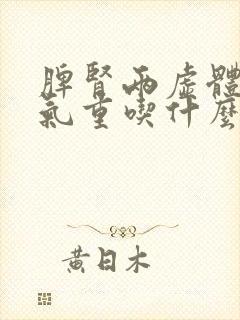 脾腎兩虛體
氣重喫什麼
黃日木